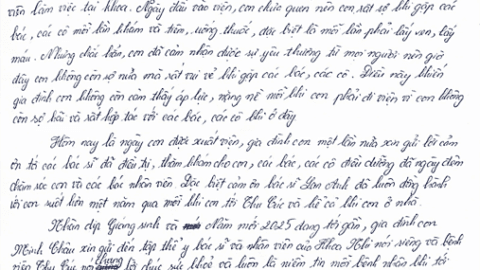 viên làm việc tại khoa. Ngày đầu vào viện, con chưa quen nên con rất sợ khi gặp các
bác, các cô mỗi lần khám và tiêm, uống thuốc, đặc biệt là mỗi lần phải lấy ven, lấy
máu. Nhưng chắc hẳn, con đã cảm nhận được sự yêu thương từ mọi người nên giờ
đây con không còn sợ nữa mà rất vui vẻ khi gặp các bác, các cô. Điều này khiến
gia đình con không còn cảm thấy áp lực, nặng nề mỗi khi con phải đi viện vì con không
còn sợ hãi và rất hợp tác với các bác, các cô khi ở đây
Hôm nay là ngày con được xuất viện, gia đình con một lần nữa xin gửi lời cảm
ơn tới các bác sĩ đã điều trị, thăm khám cho con, các bác, các cô điều dưỡng đã ngày đêm
chăm sóc con và các bác nhân viên. Đặc biệt cảm ơn bác sĩ Lan Anh đã luôn đồng hành
với con suốt liền một năm qua mỗi khi con tới Thu Cúc và kể cả khi con ở nhà.
Nhân dịp Giáng sinh và Năm mới 2025 đang tới gần, gia đình con
Minh Châu xin gửi đến tập thể y bác sĩ và nhân viên của Khoa Nhi nói riêng và bệnh
viện Thu Cúc nói chung lời chúc sức khoẻ và luôn là niềm tin mỗi bệnh nhân khi tới